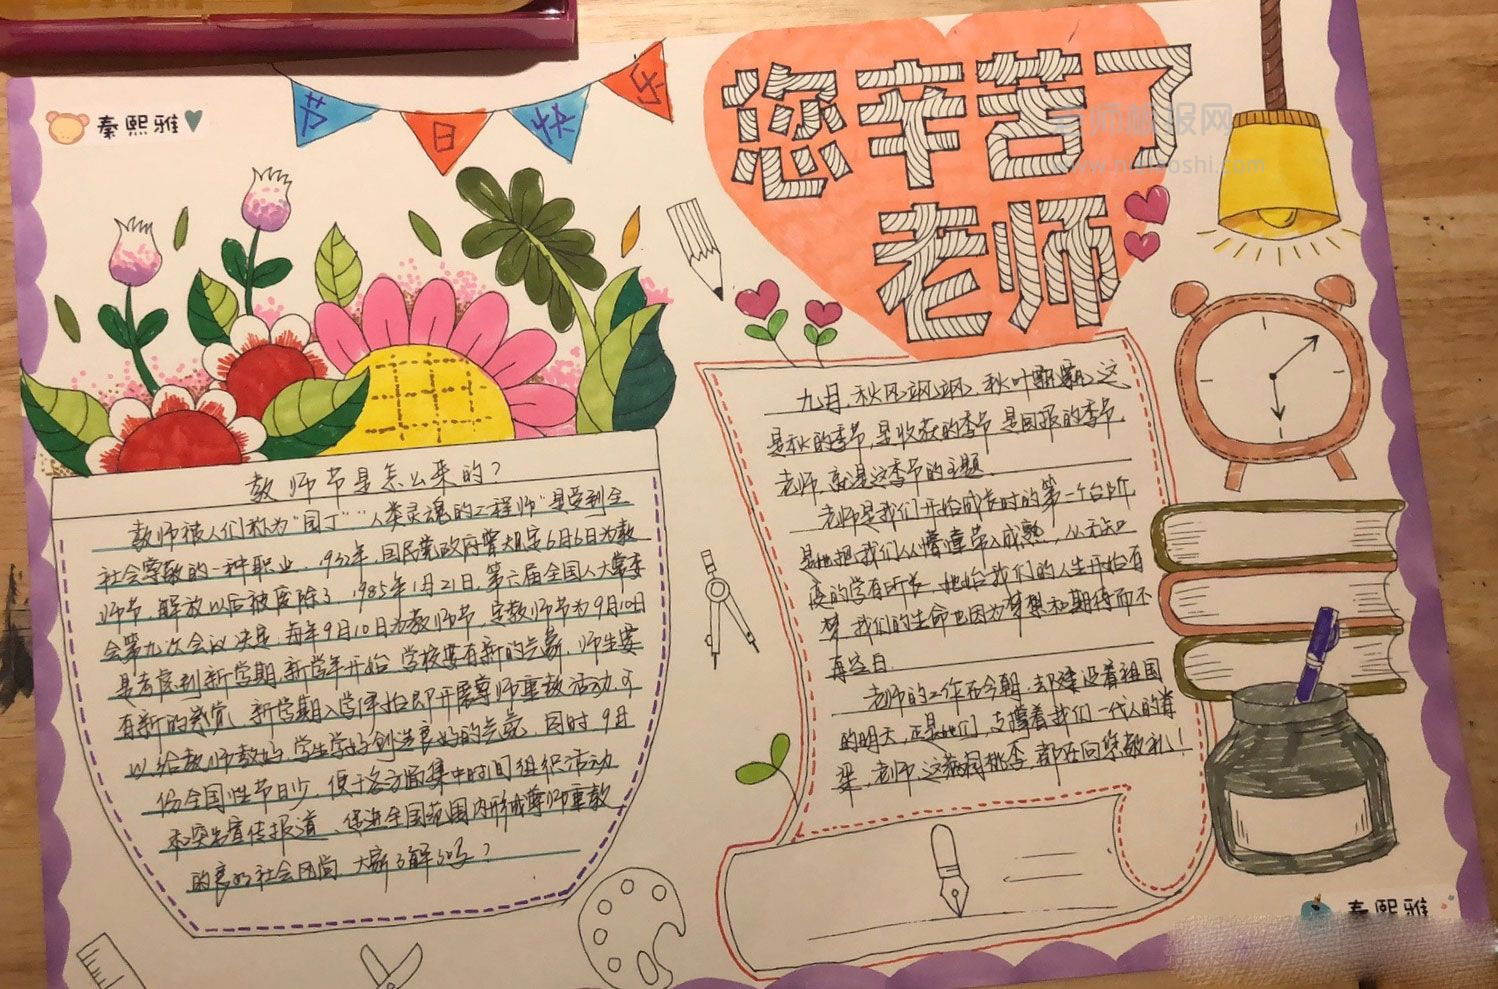 秦熙雅
节日快乐
您辛苦了
老师
老师板报网
教师节是怎么来的？
教师被人们称为"园丁""人类灵魂的工程师"是受到全
社会尊敬的一种职业。1932年,国民党政府曾规定6月6日为教
师节,解放以后被废除了,1985年1月21日,第六届全国人大常委
会第九次会议决定,每年9月10日为教师节,定教师节为9月10日
是考虑到新学期,新学年开始,学校要有新的气象,师生要
有新的感觉,新学期入学伊始即开展尊师重教活动,可
以给教师教好,学生学好创造良好的气氛,同时,9月
份全国性节日少,便于各方面集中时间组织活动
和突出宣传报道,促进全国范围内形成尊师重教
的良好社会风尚,大家了解了吗?
九月,秋风飒飒,秋叶 这
是秋的季节,是收获的季节,是回报的季节,
老师,就是这季节的主题.
老师是我们开始成长时的第一个台阶,
是她把我们从懵懂带入成熟,从无知
度的学有所长,她给我们的人生开始有
梦,我们的生命也因为梦想和期待而不
再空白.
老师的工作在今朝,却建设着祖国
的明天,正是她们,支撑着我们一代人的脊
梁,老师,这满园桃李,都在向您敬礼!
秦熙雅